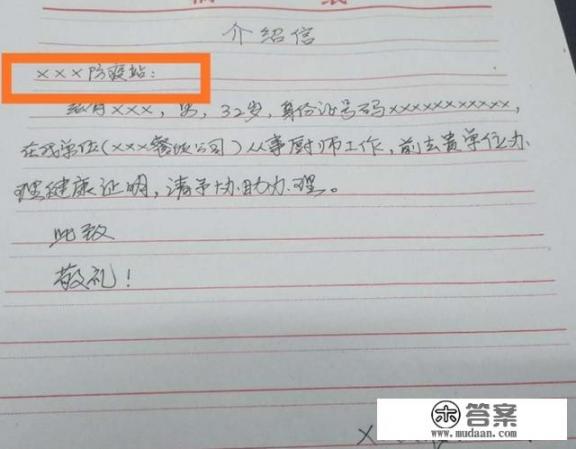 介绍信
×××防疫站：
兹有×××，男，32岁，身份证号码×××××××××××，
在我单位（×××餐饮公司）从事厨师工作，前去贵单位办
理健康证明，请予协助办理。
此致
敬礼！
答案
www.mudaan.com